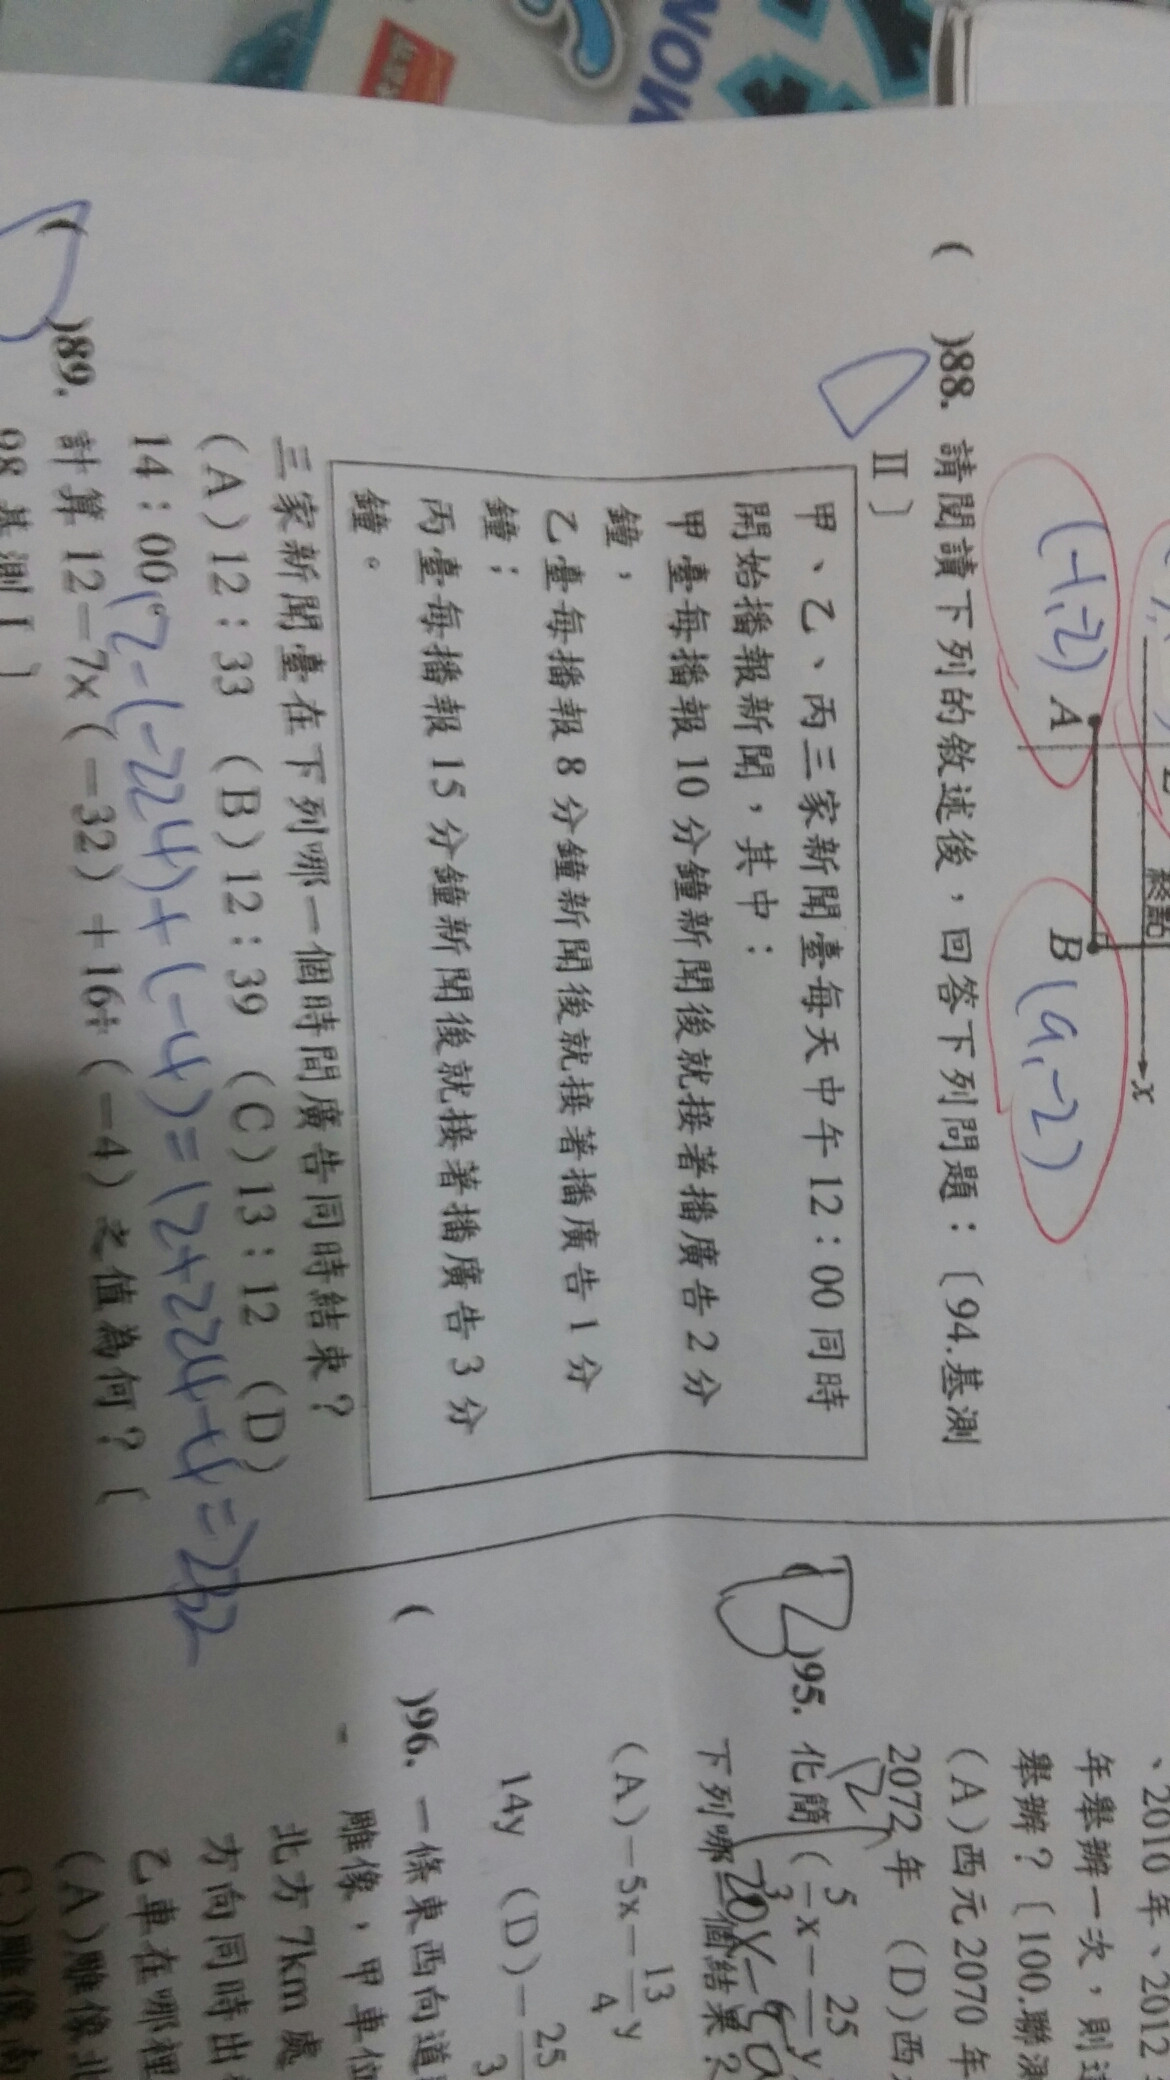 WOW
終點
x
(-1,-2) A
B (9,-2)
( )88. 請閱讀下列的敘述後，回答下列問題：〔94.基測
II〕
甲、乙、丙三家新聞臺每天中午12：00同時
開始播報新聞，其中：
甲臺每播報10分鐘新聞後就接著播廣告2分
鐘，
乙臺每播報8分鐘新聞後就接著播廣告1分
鐘；
丙臺每播報15分鐘新聞後就接著播廣告3分
鐘。
三家新聞臺在下列哪一個時間廣告同時結束？
(A)12：33 (B)12：39 (C)13：12 (D)
14：00
12-(-224)+(-4)=12+224-4=232
( )89. 計算12－7×(－32)＋16÷(－4)之值為何？〔
98.基測I〕
、2010年、2012
年舉辦一次，則這
舉辦？〔100.聯測
(A)西元2070年
2072年 (D)西
12
)95. 化簡(5/3x－25 y
下列哪一個結果？
(A)－5x－13/4y
14y (D)－25/3
( )96. 一條東西向道
雕像，甲車位
北方7km處
方向同時出
乙車在哪裡
(A)雕像北
C)雕像南